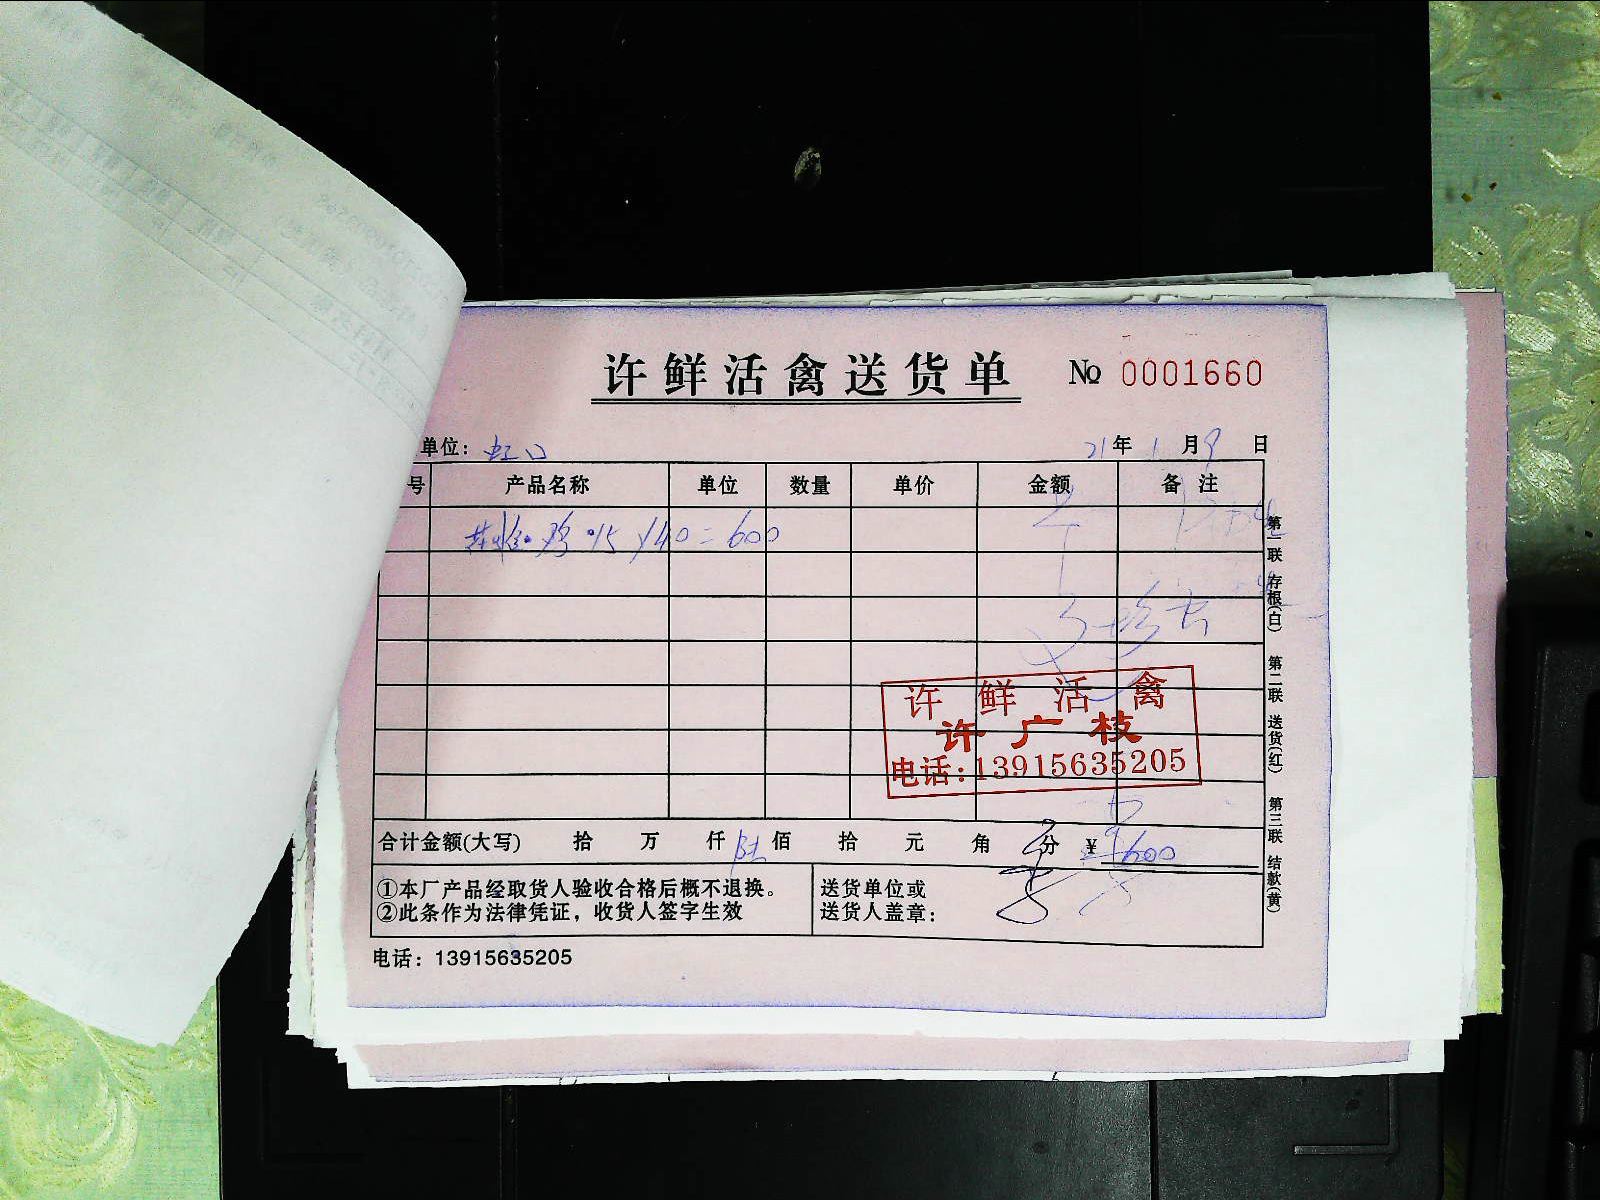 许鲜活禽送货单 № 0001660
单位：虹口 21年1月9日
号 产品名称 单位 数量 单价 金额 备注
鸡 15 × 40 = 600
许鲜活禽
许广枝
电话：13915635205
合计金额(大写) 拾 万 仟 陆佰 拾 元 角 分 ¥600
①本厂产品经取货人验收合格后概不退换。
②此条作为法律凭证，收货人签字生效
送货单位或
送货人盖章：
电话：13915635205
第一联 存根(白) 第二联 送货(红) 第三联 结款(黄)